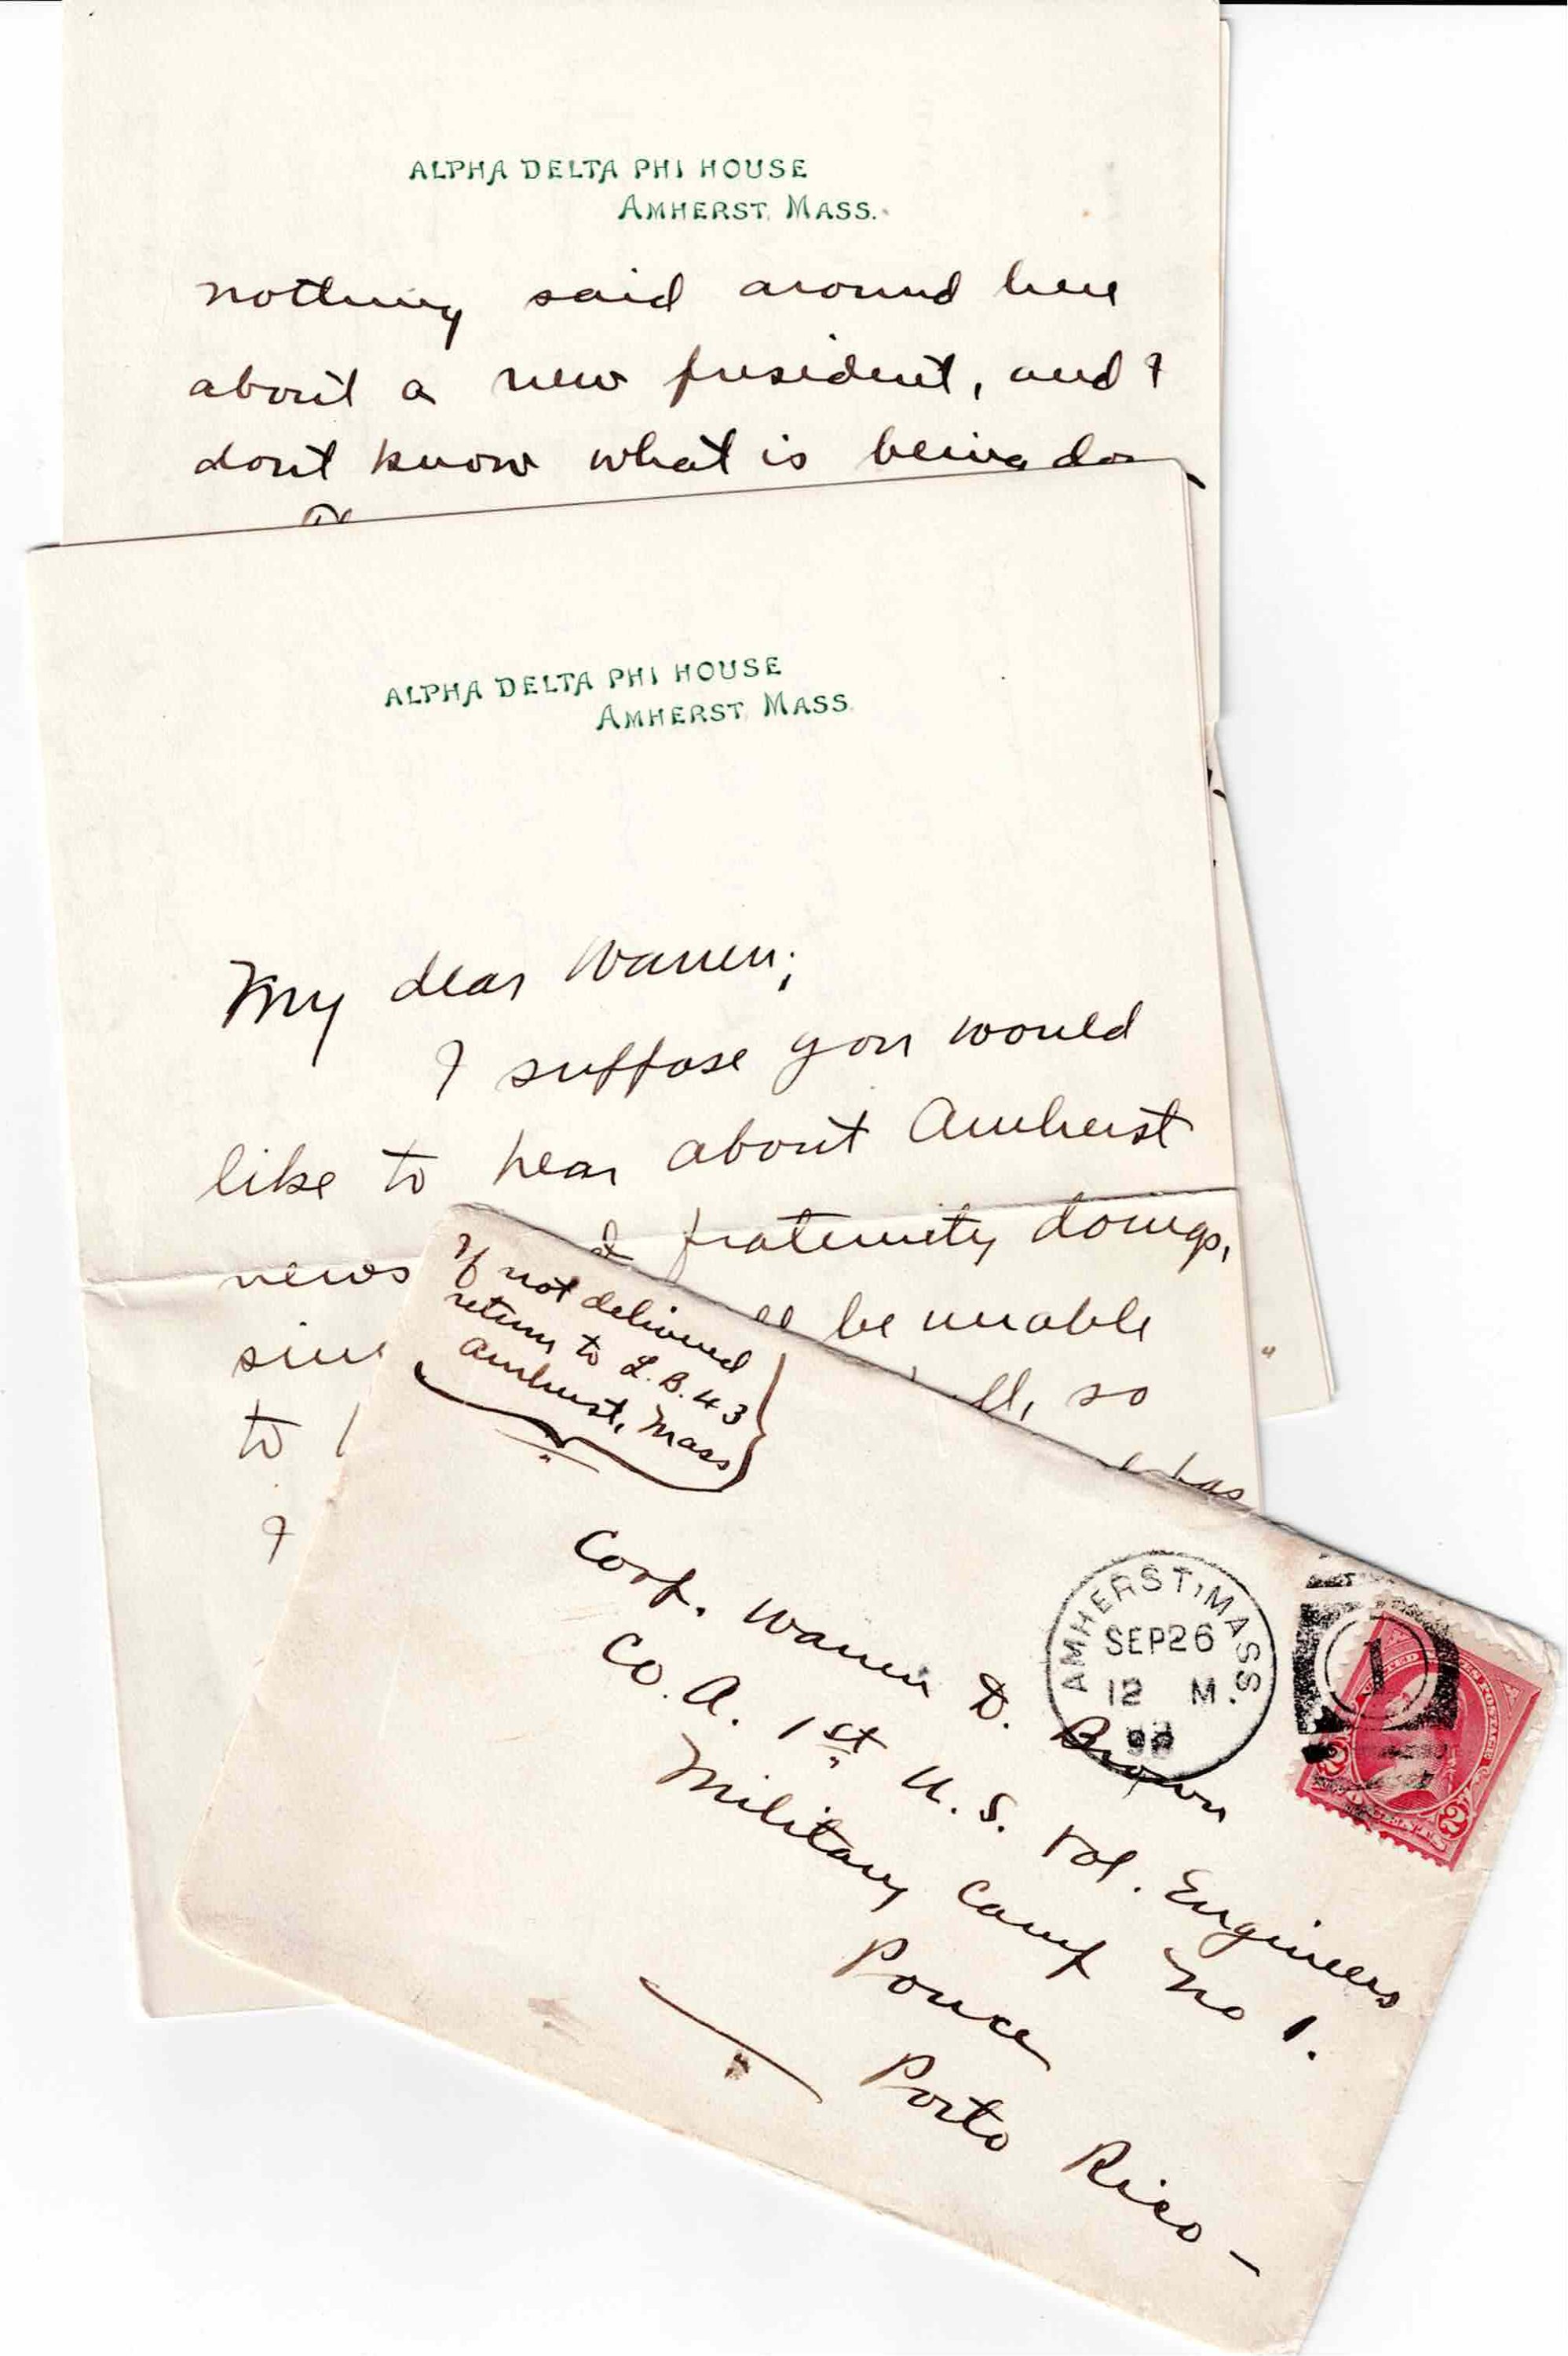 ALPHA DELTA PHI HOUSE
AMHERST, MASS.
nothing said around here
about a new president, and I
dont know what is being do
ALPHA DELTA PHI HOUSE
AMHERST, MASS.
My dear Warren;
I suppose you would
like to hear about Amherst
news fraternity doings,
be unable
to
so
has
I
If not delivered
return to L.B. 43
Amherst, Mass
Corp. Warren D. Brown
Co. A. 1st U.S. Vol. Engineers
Military Camp No 1.
Ponce
Porto Rico —
AMHERST, MASS.
SEP 26
12 M.
98
1
2 2